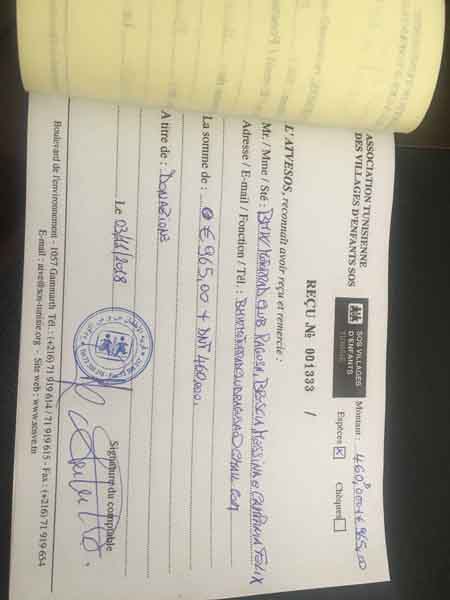 ASSOCIATION TUNISIENNE
DES VILLAGES D'ENFANTS SOS
SOS VILLAGES
D'ENFANTS
TUNISIE
Montant : 460,000 + € 965,00
Espèces X Chèques
REÇU № 001333 /
L'ATVESOS, reconnaît avoir reçu et remercie :
Mr. / Mme / Sté : BMW MOTORRAD CLUB RAGUSA, BRESCIA, MESSINA e CAMPANIA FELIX
Adresse / E-mail / Fonction / Tél. : BMWMOTORRADCLUBRAGUSA@GMAIL.COM
La somme de : € 965,00 + DNT 460,000.
A titre de : DONAZIONE
Le 03/11/2018
Signature du comptable
Boulevard de l'environnement - 1057 Gammarth Tél. : (+216) 71 919 614 / 71 919 615 - Fax : (+216) 71 919 654
E-mail : atve@sos-tunisie.org - Site web : www.sosve.tn